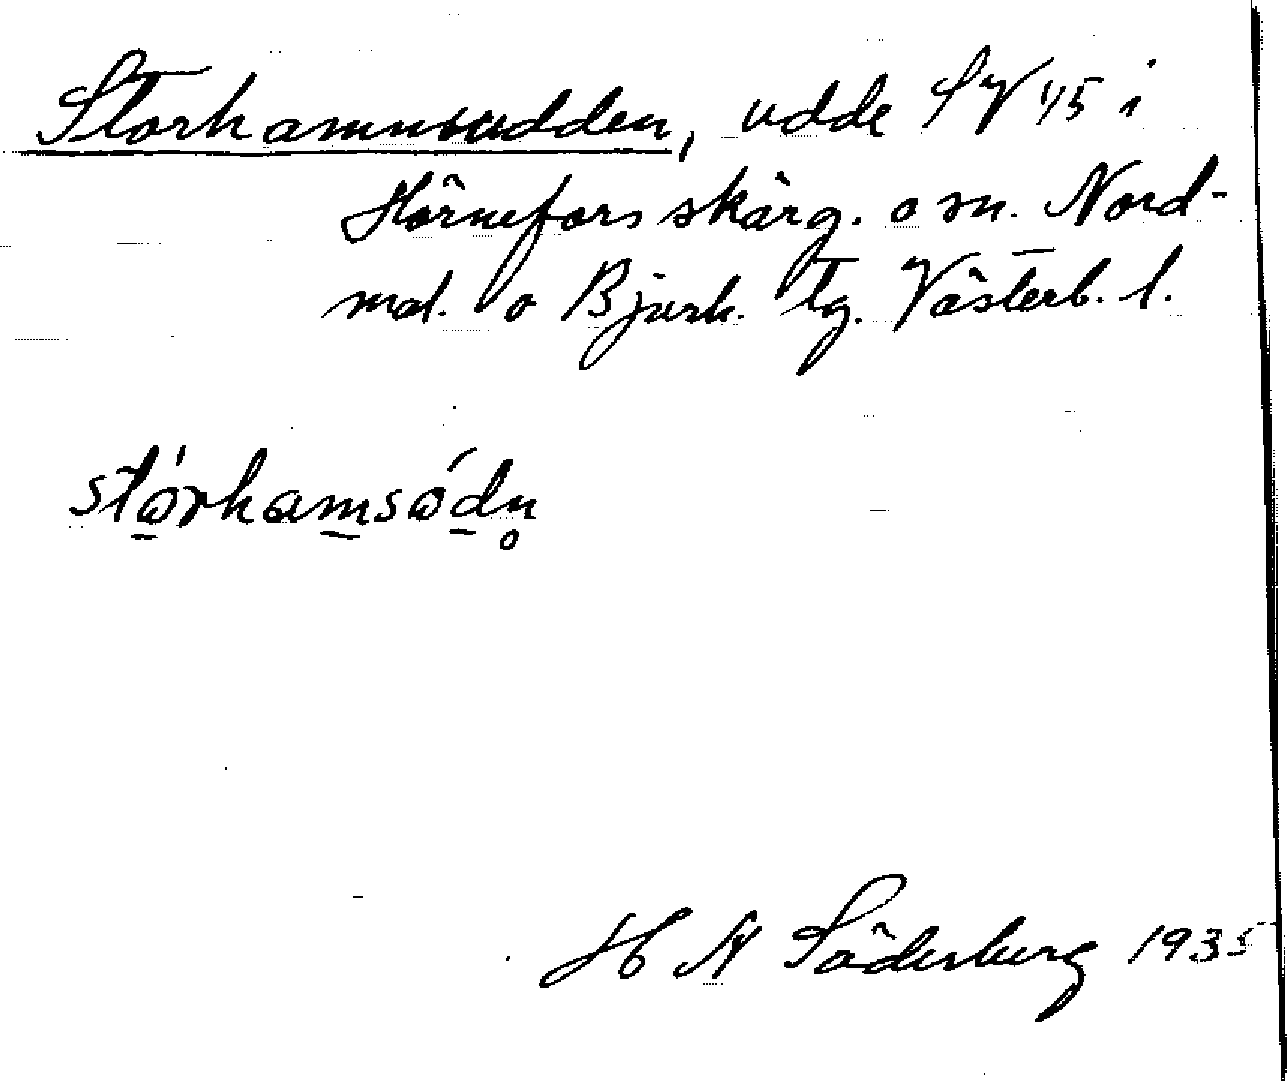 Storhamnsudden, udde SV 45 i
Hörnefors skärg. o sn. Nord-
mal. o Bjurh. tg. Västerb. l.
stórhamsódn̥
H N Söderberg 1935